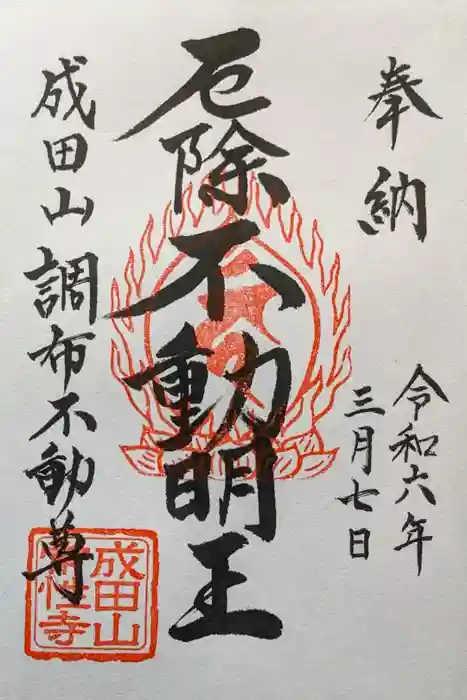 奉納
令和六年
三月七日
厄除不動明王
成田山調布不動尊
成田山
常性寺